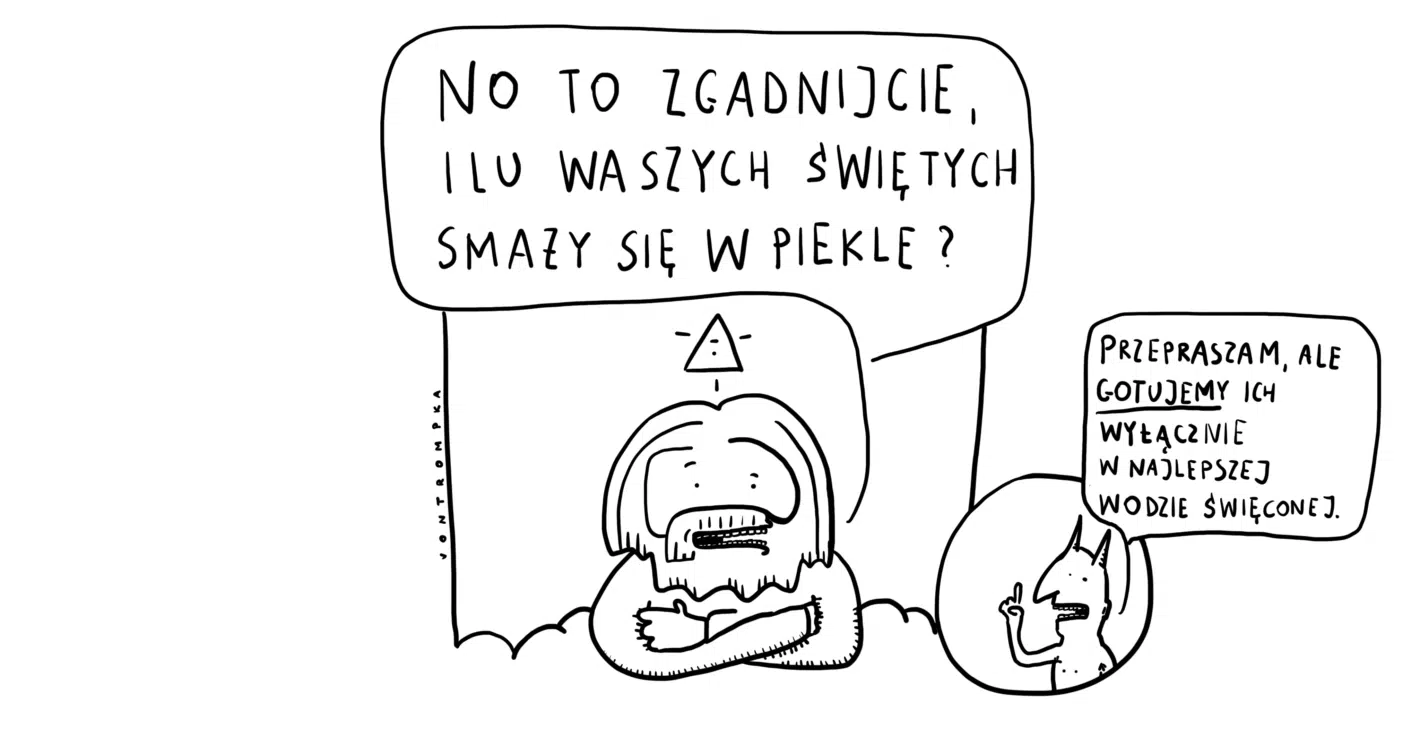 NO TO ZGADNIJCIE,
ILU WASZYCH ŚWIĘTYCH
SMAŻY SIĘ W PIEKLE?
PRZEPRASZAM, ALE
GOTUJEMY ICH
WYŁĄCZNIE
W NAJLEPSZEJ
WODZIE ŚWIĘCONEJ.
VONTROMPKA